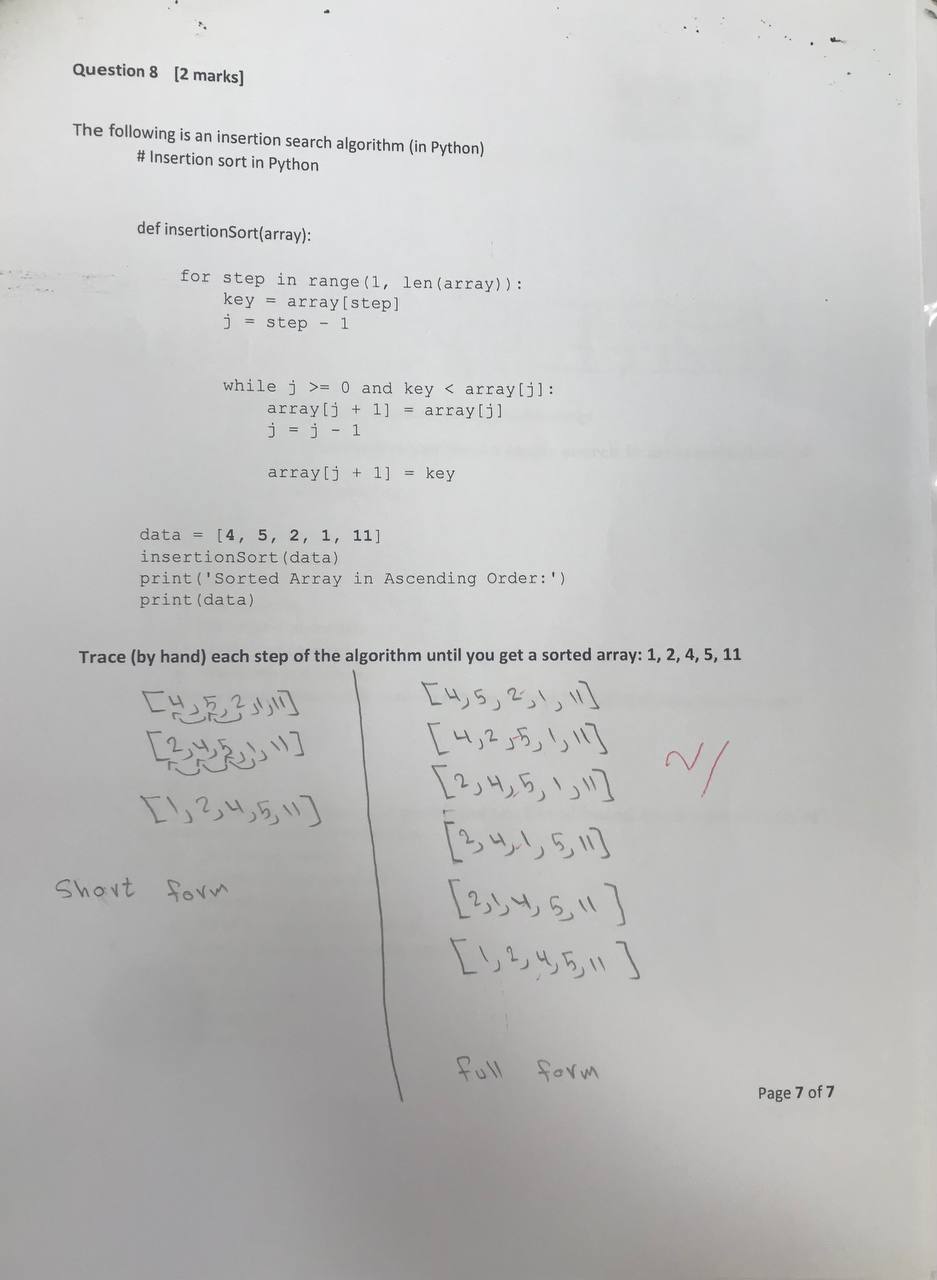 Question 8 [2 marks]
The following is an insertion search algorithm (in Python)
# Insertion sort in Python
def insertionSort(array):
for step in range(1, len(array)):
key = array[step]
j = step - 1
while j >= 0 and key < array[j]:
array[j + 1] = array[j]
j = j - 1
array[j + 1] = key
data = [4, 5, 2, 1, 11]
insertionSort(data)
print('Sorted Array in Ascending Order:')
print(data)
Trace (by hand) each step of the algorithm until you get a sorted array: 1, 2, 4, 5, 11
[4,5,2,1,11]
[2,4,5,1,11]
[1,2,4,5,11]
Short form
[4,5,2,1,11]
[4,2,5,1,11]
[2,4,5,1,11]
[2,4,1,5,11]
[2,1,4,5,11]
[1,2,4,5,11]
full form
Page 7 of 7